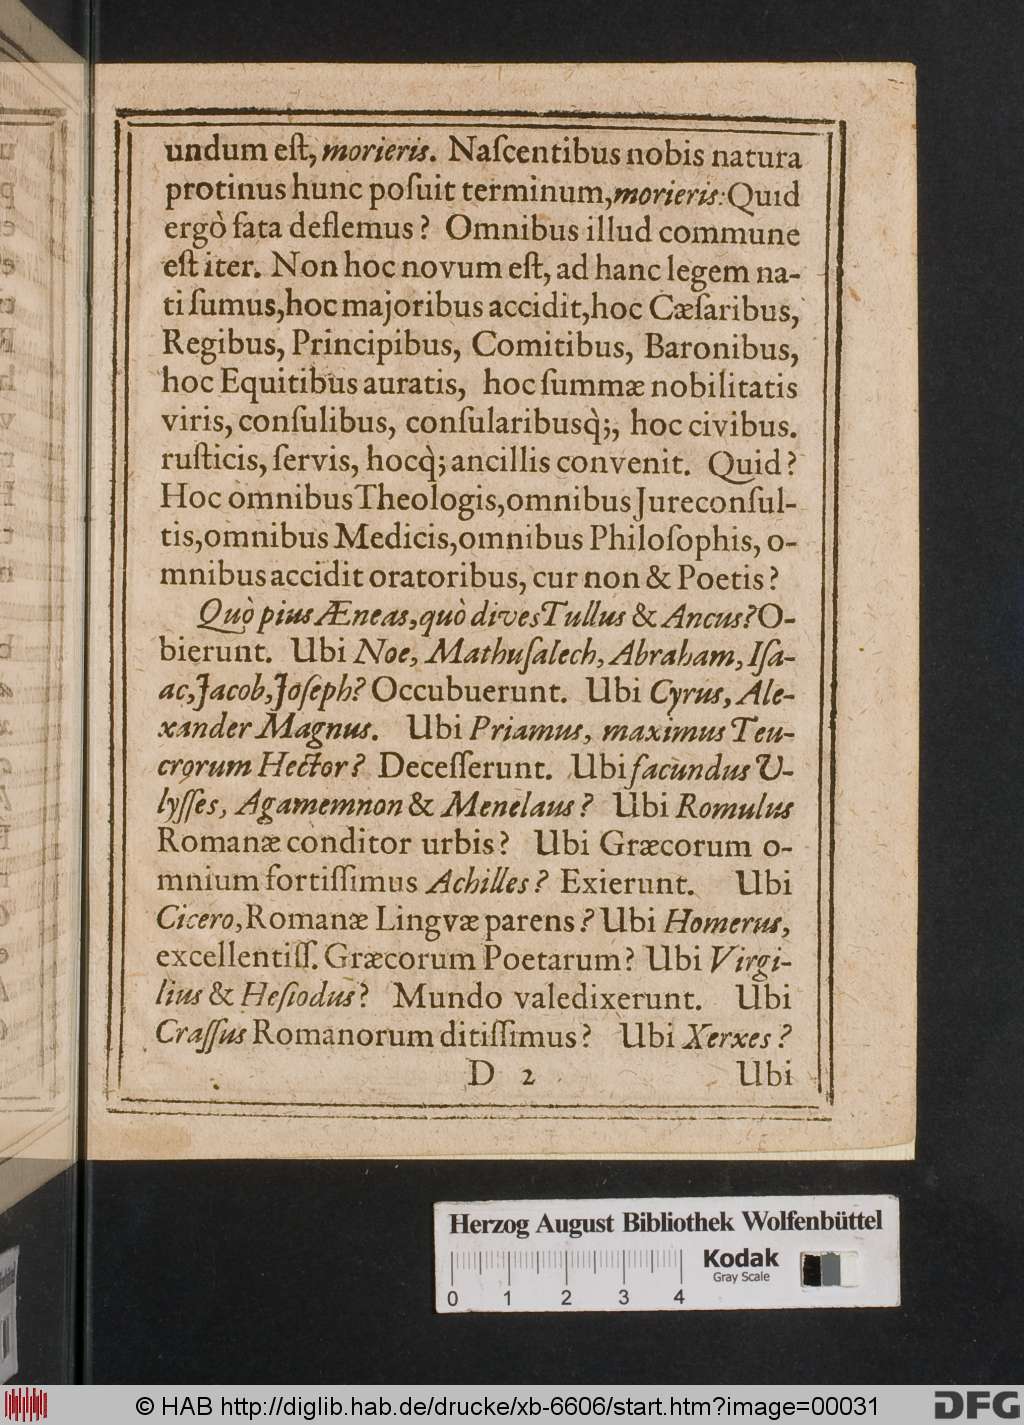 undum eſt, morieris. Naſcentibus nobis natura
protinus hunc poſuit terminum, morieris: Quid
ergò fata deflemus? Omnibus illud commune
eſt iter. Non hoc novum eſt, ad hanc legem na-
ti ſumus, hoc majoribus accidit, hoc Cæſaribus,
Regibus, Principibus, Comitibus, Baronibus,
hoc Equitibus auratis, hoc ſummæ nobilitatis
viris, conſulibus, conſularibusq̀;, hoc civibus.
ruſticis, ſervis, hocq̀; ancillis convenit. Quid?
Hoc omnibus Theologis, omnibus Jureconſul-
tis, omnibus Medicis, omnibus Philoſophis, o-
mnibus accidit oratoribus, cur non & Poetis?
Quò pius Æneas, quò dives Tullus & Ancus? O-
bierunt. Ubi Noe, Mathuſalech, Abraham, Iſa-
ac, Jacob, Joſeph? Occubuerunt. Ubi Cyrus, Ale-
xander Magnus. Ubi Priamus, maximus Teu-
crorum Hector? Deceſſerunt. Ubi facundus U-
lyſſes, Agamemnon & Menelaus? Ubi Romulus
Romanæ conditor urbis? Ubi Græcorum o-
mnium fortiſſimus Achilles? Exierunt. Ubi
Cicero, Romanæ Lingvæ parens? Ubi Homerus,
excellentiſſ. Græcorum Poetarum? Ubi Virgi-
lius & Heſiodus? Mundo valedixerunt. Ubi
Craſſus Romanorum ditiſſimus? Ubi Xerxes?
D 2 Ubi
Herzog August Bibliothek Wolfenbüttel
Kodak
Gray Scale
0 1 2 3 4
© HAB http://diglib.hab.de/drucke/xb-6606/start.htm?image=00031
DFG